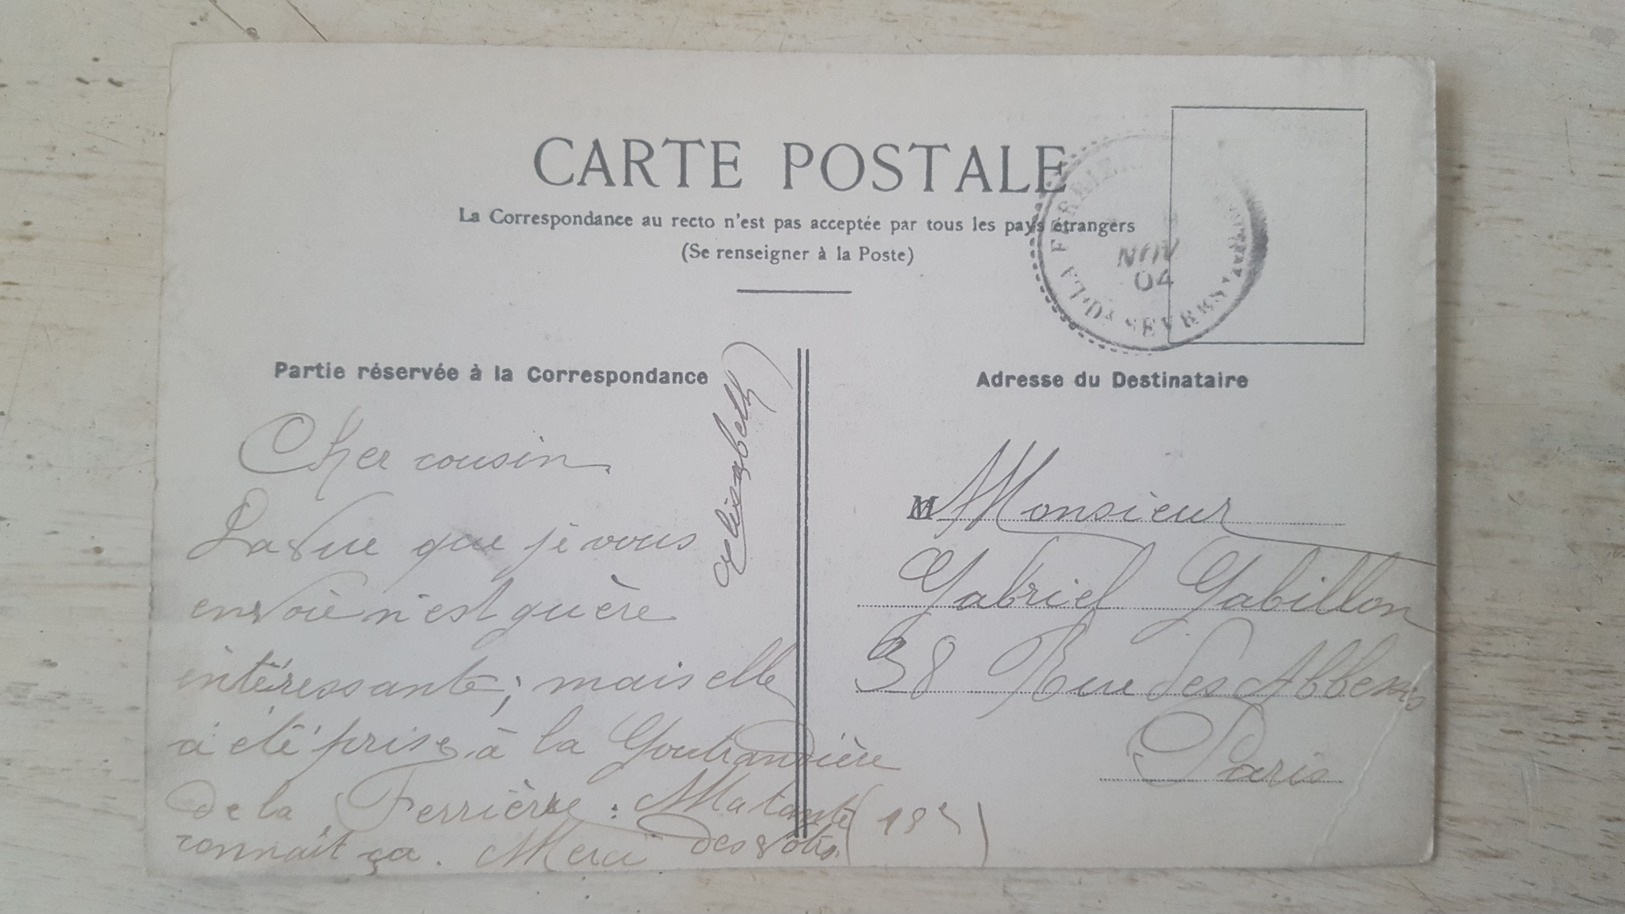 CARTE POSTALE
La Correspondance au recto n'est pas acceptée par tous les pays étrangers
(Se renseigner à la Poste)
NOV
04
SEVRES
Partie réservée à la Correspondance
Cher cousin.
La vue que je vous
envoie n'est guère
intéressante; mais elle
a été prise à la
de la Ferrière : Ma tante
connaît ça. Merci des votres.
Elisabeth
Adresse du Destinataire
M Monsieur
Gabriel Gabillon
38 Rue des Abbesses
Paris